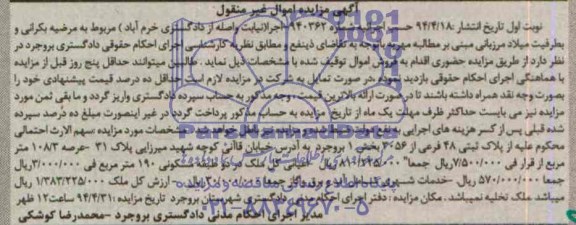 آگهی مزایده اموال غیر منقول
نوبت اول تاریخ انتشار :۹۴/۴/۱۸ اجرانیابت واصله از دادگستری خرم آباد ) مربوط به مرضیه بکرانی و
بطرفیت میلاد مرزبانی مبنی بر مطالبه مهریه با توجه به تقاضای ذینفع و مطابق نظریه کارشناسی اجرای احکام حقوقی دادگستری بروجرد در
نظر دارد از طریق مزایده حضوری اقدام به فروش اموال توقیف شده با مشخصات ذیل نماید . طالبین میتوانند حداقل پنج روز قبل از مزایده
با هماهنگی اجرای احکام حقوقی بازدید نموده ،در صورت تمایل به شرکت در مزایده لازم است حداقل ده درصد قیمت پیشنهادی خود را
بصورت وجه نقد همراه داشته باشند تا در صورت ارائه بالاترین قیمت ،وجه مذکور به حساب سپرده دادگستری واریز گردد و ما بقی ثمن مورد
مزایده نیز می بایست حداکثر ظرف مهلت یک ماه از تاریخ مزایده به حساب مذکور پرداخت گردد در غیر اینصورت مبلغ ده درصد سپرده
شده قبلی پس از کسر هزینه های اجرایی به مشخصات مورد مزایده :سهم الارث احتمالی
محکوم علیه از پلاک ثبتی ۴۸ فرعی از ۳۶۵۶ بخش ۱ بروجرد به آدرس خیابان قاآنی کوچه شهید میرزایی پلاک ۳۱ -عرصه ۱۰۸/۳ متر
مربع از قرار فی ۷/۵۰۰/۰۰۰ ریال جمعا" ریال ملک در دو طبقه مسکونی ۱۹۰ متر مربع فی ۳/۰۰۰/۰۰۰ ریال
جمعا ۵۷۰/۰۰۰/۰۰۰ ریال -خدمات ریال -ارزش کل ملک ۱/۳۸۳/۲۲۵/۰۰۰ ریال
میباشد .ملک تخلیه نمیباشد . مکان مزایده : دفتر اجرای احکام مدنی دادگستری شهرستان بروجرد تاریخ مزایده :۹۴/۴/۳۱ ساعت ۱۲ ظهر
مدیر اجرای احکام مدنی دادگستری بروجرد -محمدرضا کوشکی
۰۲۱-۸۸۳۴۹۶۷۰-۵